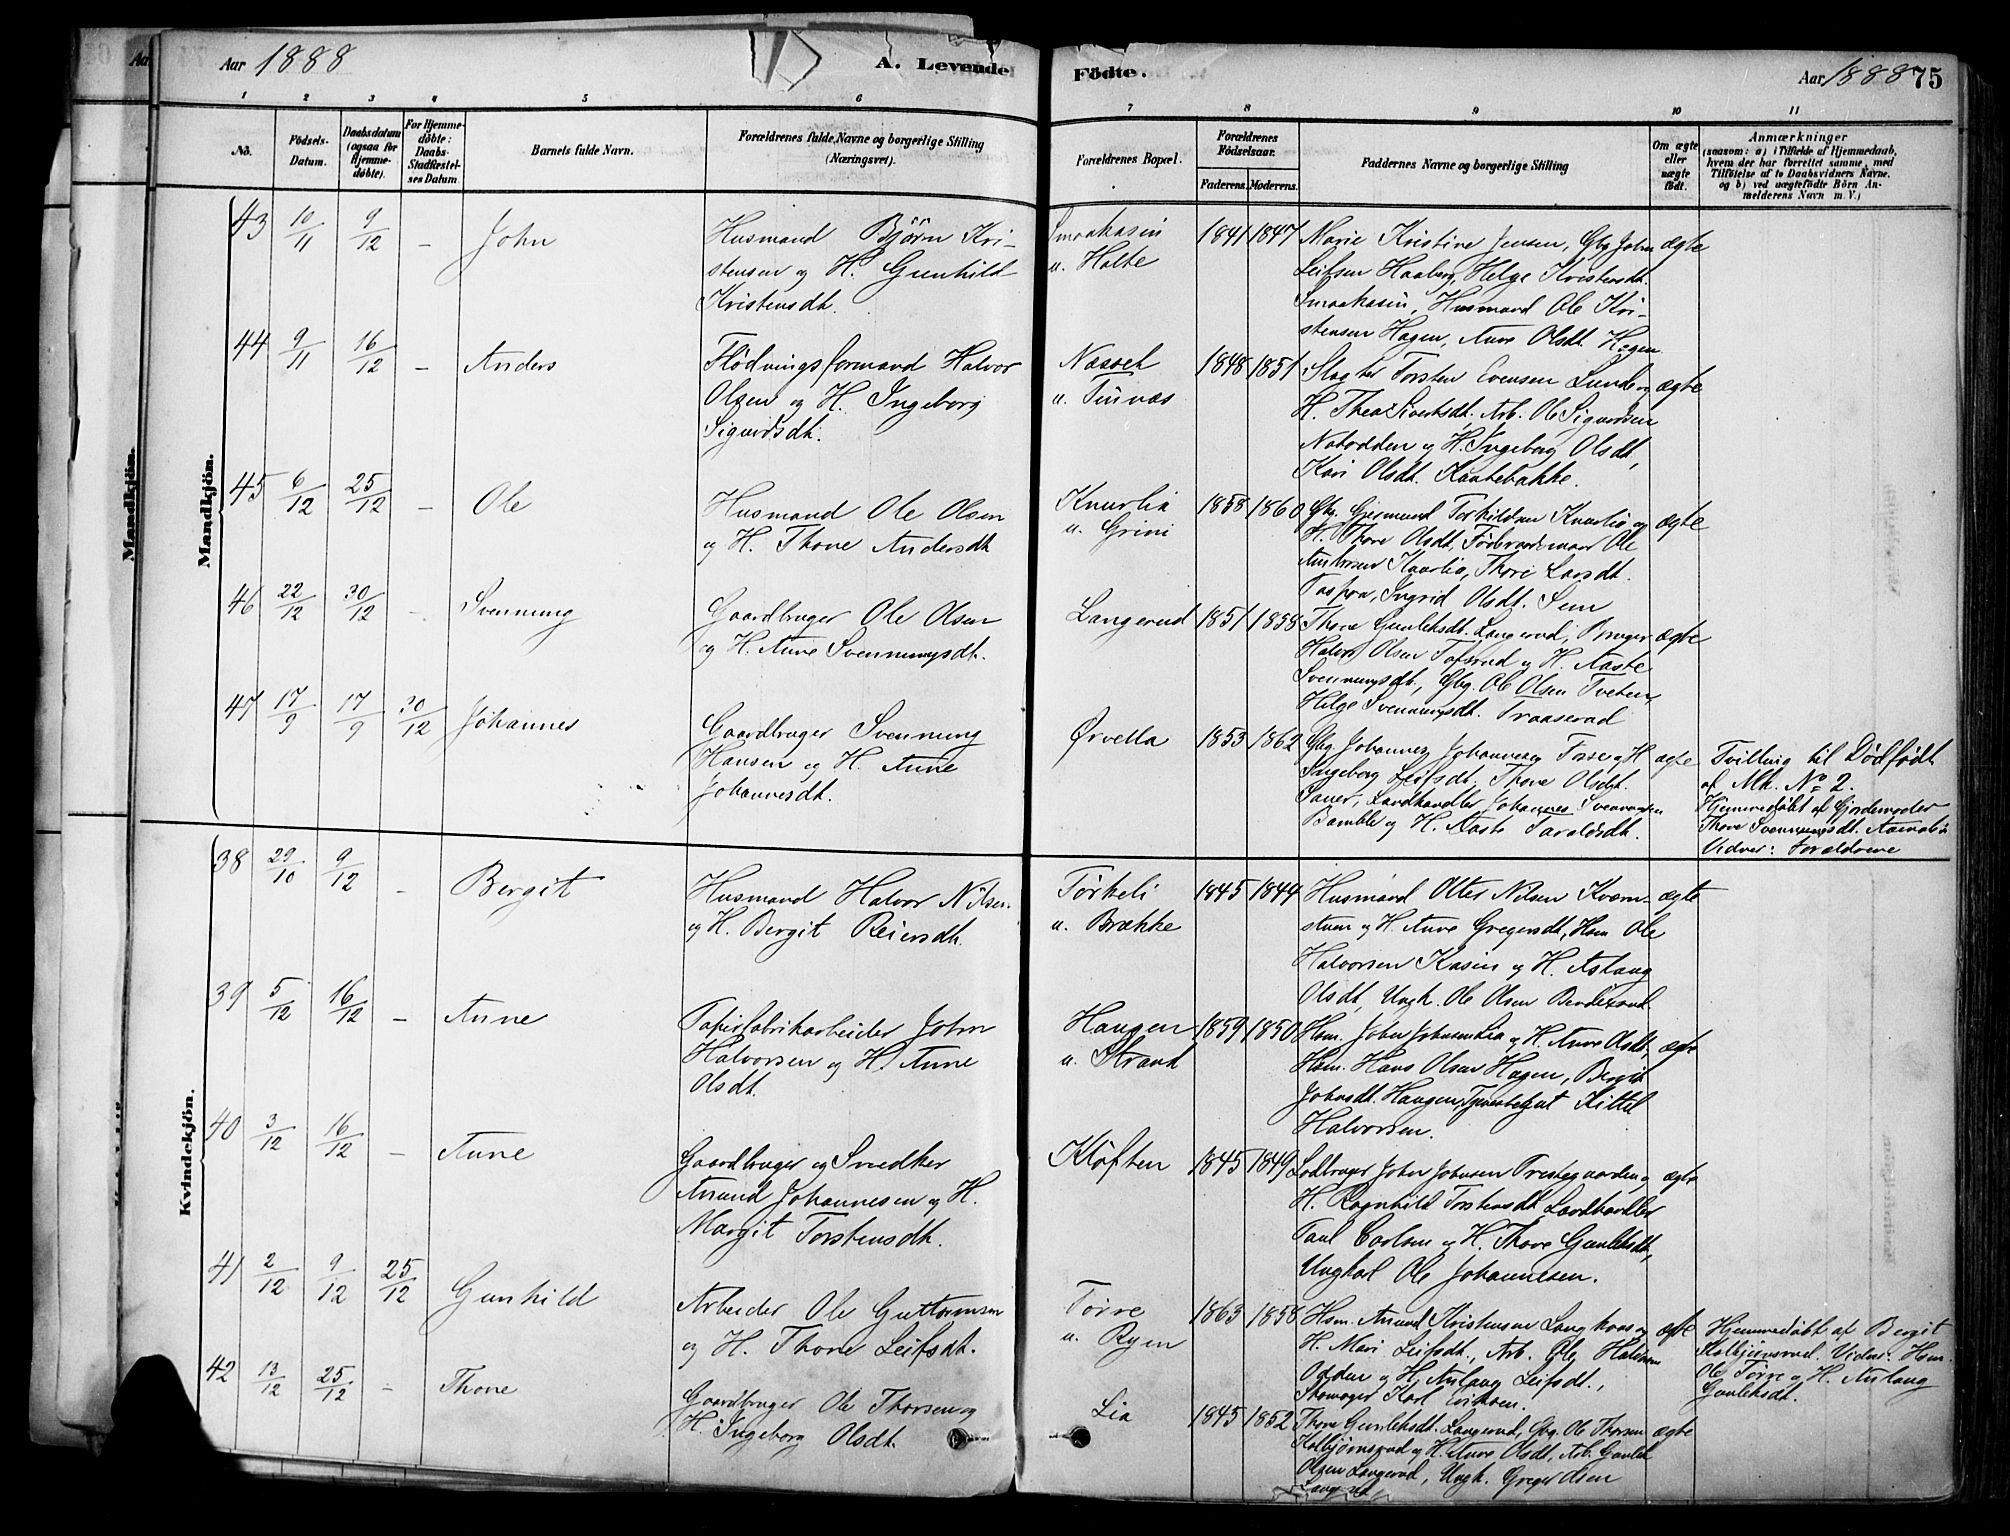 Aar 1888
A. Levende Födte.
Aar 1888 75
1 2 3 4 5 6 7 8 9 10 11
No.
Födsels-Datum.
Daabsdatum (ogsaa for Hjemmedøbte).
For Hjemmedøbte: Daabs-Stadfæstelses Datum.
Barnets fulde Navn.
Forældrenes fulde Navne og borgerlige Stilling (Næringsvei).
Forældrenes Bopæl.
Forældrenes Födselsaar.
Faderens. Moderens.
Faddernes Navne og borgerlige Stilling
Om ægte eller uægte födt.
Anmærkninger
(saasom: a) i Tilfælde af Hjemmedaab,
hvem der har forrettet samme, med
Tilföielse af to Daabsvidners Navne.
og b) ved uægtefödte Börn An-
melderens Navn m. V.)
Mandkjön.
Mandkjön.
43 10/11 9/12 - John
Husmand Björn Kri-
stensen og H. Gunhild
Kristensdt.
Smaakasin
u. Holte
1841 1847
Marie Kristine Jensen, Gbg John
Leifsen Haaberg, Helge Kristensdt.
Smaakasin, Husmand Ole Kri-
stensen Hagen, Anne Olsdt. Hagen
ægte
44 9/11 16/12 - Anders
Flödningsformand Halvor
Olsen og H. Ingeborg
Sigurdsdt.
Næsset
u. Tinnæs
1848 1851
Slagter Torsten Evensen Lund og
H. Thea Sivertsdt. Arb. Ole Sigurdsen
Notodden og H. Ingeborg Olsdt,
Kari Olsdt.
ægte
45 6/12 25/12 - Ole
Husmand Ole Olsen
og H. Thone Andersdt
Knurlia
u. Grini
1858 1860
Gbg. Gjermund Torkildsen Knurlia og
H. Thone Olsdt, Ole
Andersen Knurlia, Thore Larsdt.
Ingrid Olsdt. Sem
ægte
46 22/12 30/12 - Svenning
Gaardbruger Ole Olsen
og H. Anne Svenningsdt.
Langerud
1851 1858
Thone Gunleksdt. Langerud, Bruger
Halvor Olsen Tofsrud og H. Aaste
Svenningsdt., Gbg. Ole Olsen Tveten,
Helge Svenningsdt. Traaserud
ægte
47 17/9 17/9 30/12 Johannes
Gaardbruger Svenning
Hansen og H. Anne
Johannesdt.
Ørvella
1853 1862
Gbg. Johannes Johannesen Fosse og H
Ingeborg Leifsdt. Thone Olsdt.
Sauer, Landhandler Johannes Svenningsen
Bamble og H. Aaste Taraldsdt.
ægte
Tvilling til Dødfødt
af Mk. No 2.
Hjemmedöbt af Gjordemoder
Thone Svenningsdt.
Vidner: Forældrene
Kvindekjön.
38 29/10 9/12 - Bergit
Husmand Halvor Nilsen
og H. Bergit Reiersdt.
Törkeli
u. Brække
1845 1844
Husmand Otter Nilsen Kværn-
stuen og H. Anne Gregersdt, Hsm Ole
Halvorsen Kasin og H. Aslaug
Olsdt, Ungk. Ole Olsen
ægte
39 5/12 16/12 - Anne
Papirfabrikarbeider John
Halvorsen og H. Anne
Olsdt.
Haugen
u. Strand
1859 1850
Hsm. John Johnsen Lia og H. Anne Olsdt,
Hsm. Hans Olsen Hagen, Bergit
Johnsdt. Haugen, Tjenestegut Kittil
Halvorsen.
ægte
40 3/12 16/12 - Anne
Gaardbruger og Snedker
Amund Johannesen og H.
Margit Torstensdt.
Klöften
1845 1849
Lodbruger John Johnsen Prestegaarden og
H. Ragnhild Torstensdt Landhandler
Paul Carlsen og H. Thone Gunleksdt,
Ungkarl Ole Johannesen.
ægte
41 2/12 9/12 25/12 Gunhild
Arbeider Ole Guttormsen
og H. Thone Leifsdt.
Torve
u. Ryen
1863 1858
Hsm. Amund Kristensen Langkaas og
H. Mari Leifsdt., Arb. Ole
Odden og H. Aslaug Leifsdt.,
Skomager Karl Eriksen.
ægte
Hjemmedöbt af Bergit
Kolbjörnsrud. Vidner: Hsm.
Ole Torve og H. Aslaug
Gunleksdt.
42 13/12 25/12 - Thone
Gaardbruger Ole Thorsen og
H. Ingeborg Olsdt.
Lia
1845 1852
Thone Gunleksdt. Langerud, Gbg. Ole Thorsen
Kolbjörnsrud og H. Anne Olsdt, Arb. Gunlek
Olsen Langerud, Ungk. Greger Olsen
Langerud
ægte